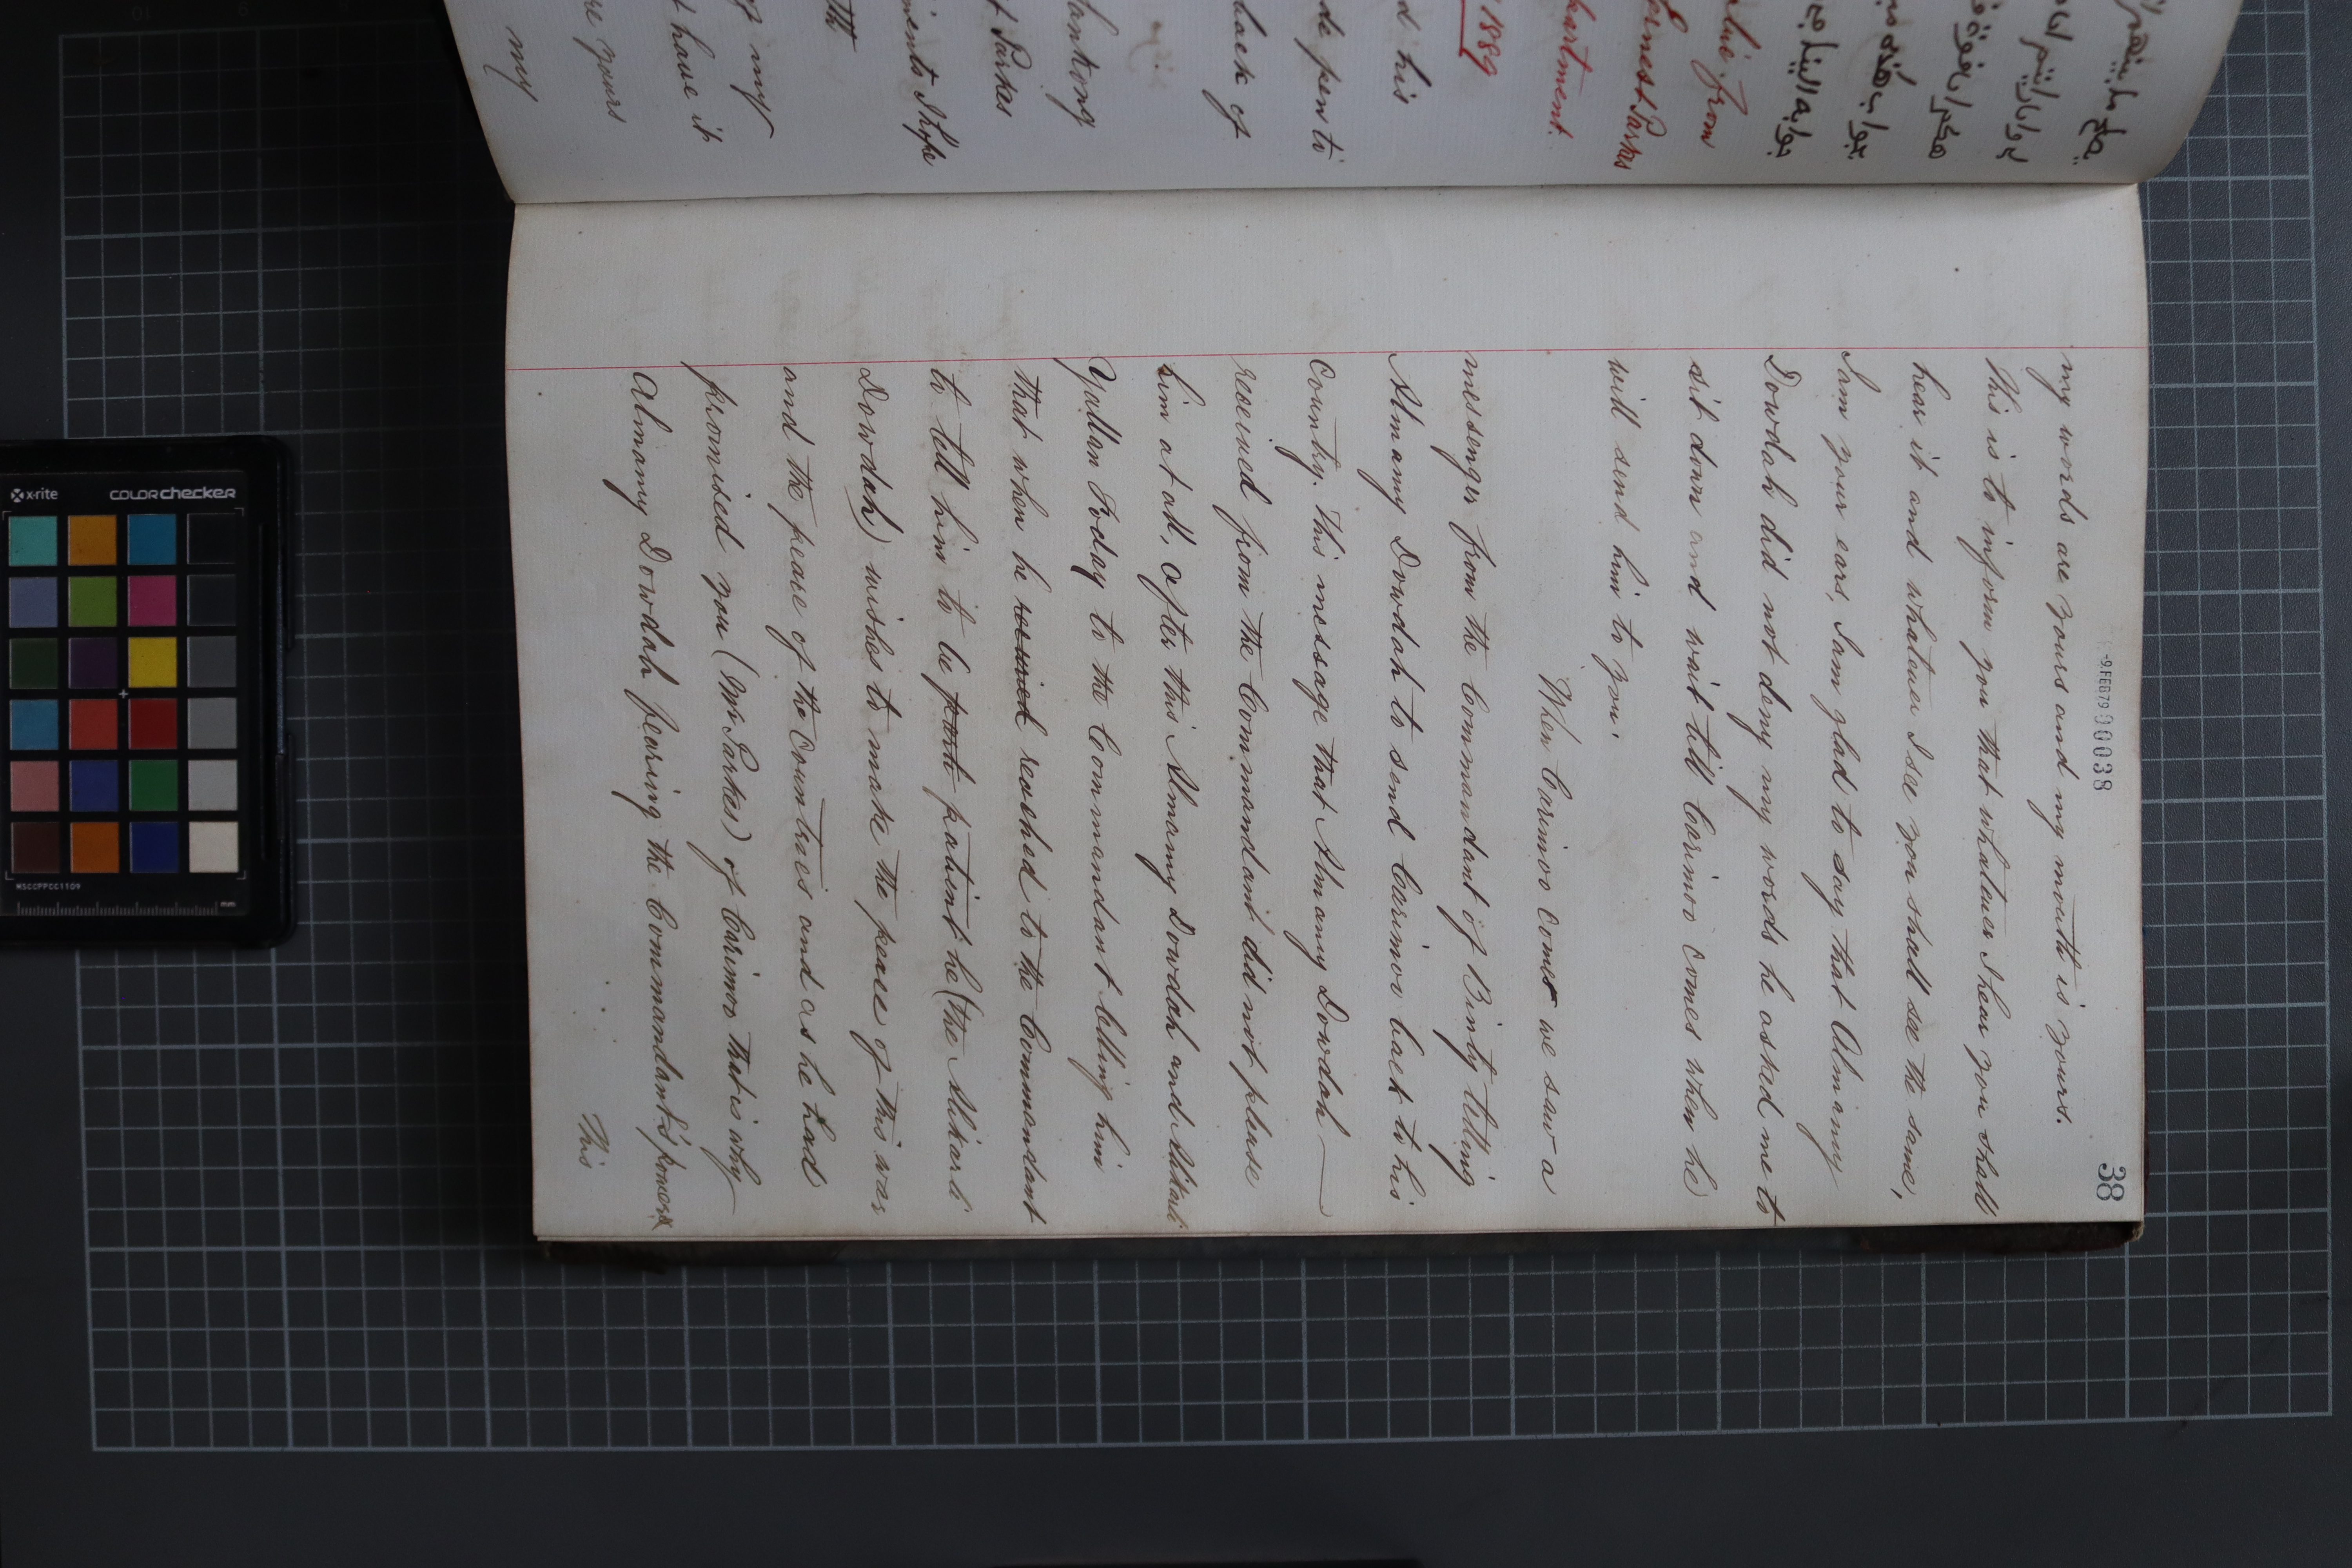 38
-9.FEB79 00038
my words are yours and my mouth is yours.
This is to inform you that whatever I hear you shall
hear it and whatever I see you shall see the same,
I am your ears, I am glad to say that Almamy
Dowdah did not deny my words he asked me to
sit down and wait till Carimoo comes when he
will send him to you.
When Carimoo comes we saw a
messenger from the Commandant of Binty telling
Almamy Dowdah to send Carimoo back to his
Country. This message that Almamy Dowdah
received from the Commandant did not please
him at all, after this Almamy Dowdah and Alikarli
Yallan Foday to the Commandant telling him
that when he received reached to the Commandant
to tell him to be patient he (the Alikarli
Dowdah) wishes to make the peace of this war
and the peace of the Countries and as he had
promised you (Mr Parkes) of Carimoo that is why
Almamy Dowdah fearing the Commandant's power
This
from
Ernest Parkes
partment.
1889
d his
de pen to
back of
t Parkes
ments I hope
th
of my
t have it
re yours
my
x-rite
colorchecker
MSCCPPCC1109
mm